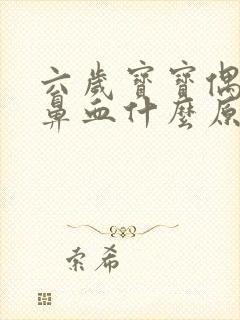 六歲寶寶偶
鼻血什麼原
索希